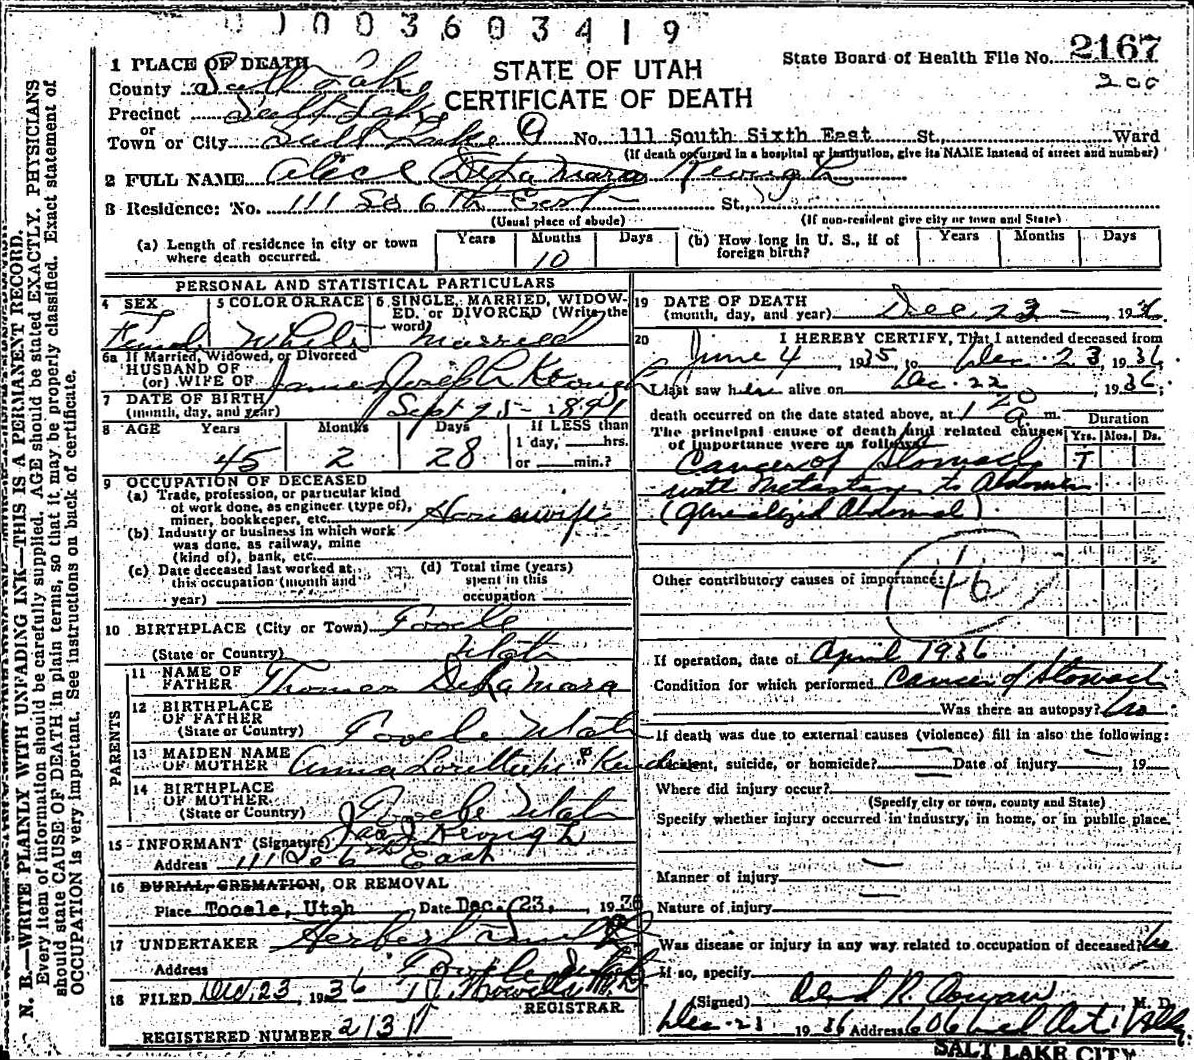 0 1 0 0 3 6 0 3 4 1 9
STATE OF UTAH
CERTIFICATE OF DEATH
State Board of Health File No. 2167
200
1 PLACE OF DEATH
County Salt Lake
Precinct Salt Lake
or
Town or City Salt Lake No. 111 South Sixth East St., Ward
(If death occurred in a hospital or institution, give its NAME instead of street and number)
2 FULL NAME Alice DeLaMara Keough
3 Residence: No. 111 So 6th East St.,
(Usual place of abode) (If non-resident give city or town and State)
(a) Length of residence in city or town where death occurred. Years Months 10 Days
(b) How long in U. S., if of foreign birth? Years Months Days
PERSONAL AND STATISTICAL PARTICULARS
4 SEX Female
5 COLOR OR RACE White
6 SINGLE, MARRIED, WIDOWED, or DIVORCED (Write the word) Married
6a If Married, Widowed, or Divorced
HUSBAND OF
(or) WIFE OF James Joseph Keough
7 DATE OF BIRTH
(month, day, and year) Sept 25 - 1891
8 AGE Years 45 Months 2 Days 28 If LESS than 1 day, hrs. or min.?
9 OCCUPATION OF DECEASED
(a) Trade, profession, or particular kind of work done, as engineer (type of), miner, bookkeeper, etc. Housewife
(b) Industry or business in which work was done, as railway, mine (kind of), bank, etc.
(c) Date deceased last worked at this occupation (month and year)
(d) Total time (years) spent in this occupation
10 BIRTHPLACE (City or Town) Tooele
(State or Country) Utah
PARENTS
11 NAME OF FATHER Thomas DeLaMara
12 BIRTHPLACE OF FATHER
(State or Country) Tooele Utah
13 MAIDEN NAME OF MOTHER Anna
14 BIRTHPLACE OF MOTHER
(State or Country) Tooele Utah
15 INFORMANT (Signature) Jas J Keough
Address 111 So 6th East
16 BURIAL, CREMATION, OR REMOVAL
Place Tooele, Utah Date Dec. 23, 1936
17 UNDERTAKER Herbert
Address Tooele Utah
18 FILED Dec, 23, 1936
REGISTRAR
REGISTERED NUMBER 2131
19 DATE OF DEATH
(month, day, and year) Dec. 23 - , 1936.
20 I HEREBY CERTIFY, That I attended deceased from
June 4, 1935, to Dec. 23, 1936
I last saw her alive on Dec. 22, 1936;
death occurred on the date stated above, at 1 20 a m.
The principal cause of death and related causes of importance were as follows: Duration Yrs. Mos. Ds.
Cancer of Stomach 1
with metastases to Abdomen
(generalized Abdominal)
Other contributory causes of importance:
46
If operation, date of April 1936
Condition for which performed Cancer of Stomach
Was there an autopsy? No
If death was due to external causes (violence) fill in also the following:
Accident, suicide, or homicide? Date of injury , 19
Where did injury occur?
(Specify city or town, county and State)
Specify whether injury occurred in industry, in home, or in public place.
Manner of injury
Nature of injury
Was disease or injury in any way related to occupation of deceased? No
If so, specify
(Signed) M. D.
Dec. 23 1936 Address 606 Med Arts Bldg
SALT LAKE CITY
N. B.—WRITE PLAINLY WITH UNFADING INK—THIS IS A PERMANENT RECORD.
Every item of information should be carefully supplied. AGE should be stated EXACTLY. PHYSICIANS
should state CAUSE OF DEATH in plain terms, so that it may be properly classified. Exact statement of
OCCUPATION is very important. See instructions on back of certificate.